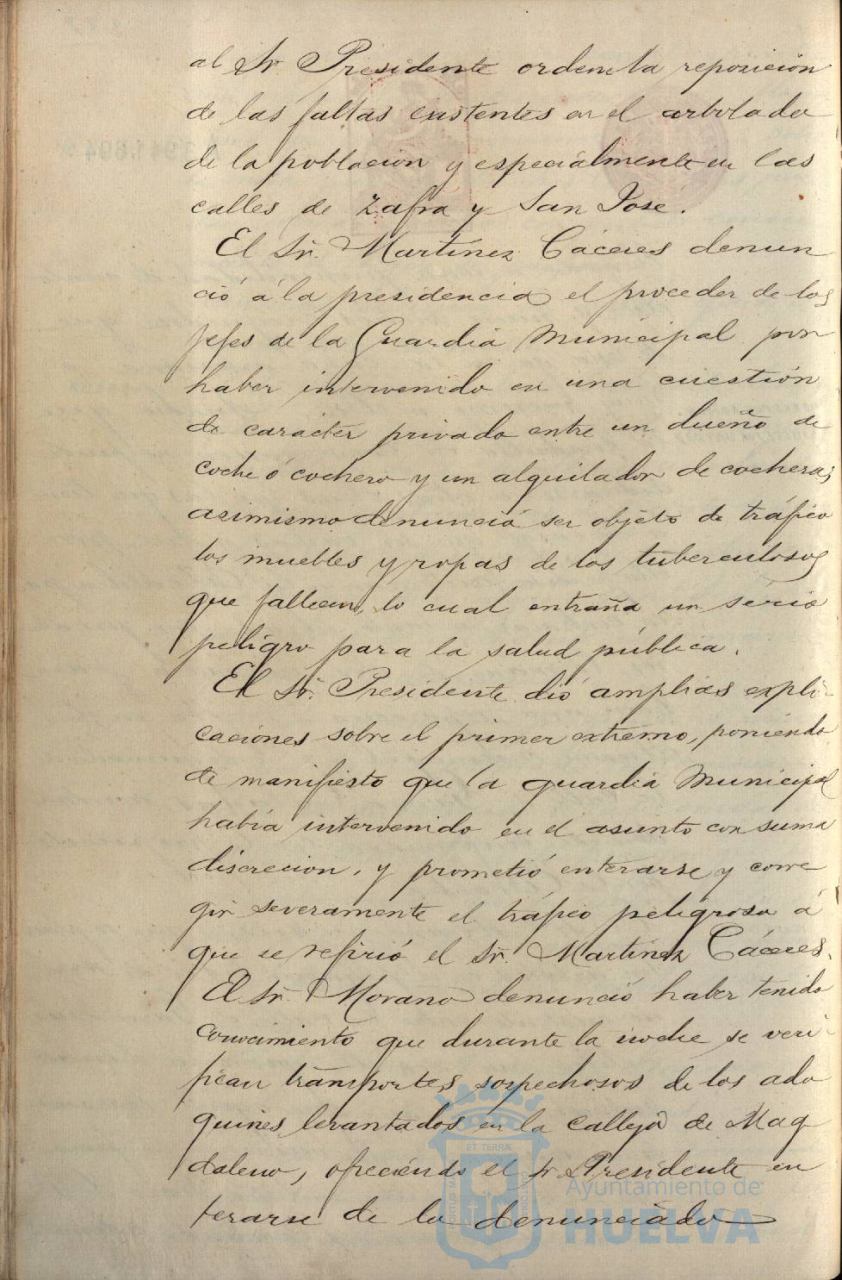 al Sr. Presidente ordene la reposición
de las faltas existentes en el arbolado
de la población y especialmente en las
calles de Zafra y San José.
El Sr. Martínez Cáceres denun
ció á la presidencia el proceder de los
jefes de la Guardia Municipal por
haber intervenido en una cuestión
de carácter privado entre un dueño de
coche ó cochero y un alquilador de cocheras;
asimismo denunció ser objeto de tráfico
los muebles y ropas de los tuberculosos
que fallecen, lo cual entraña un serio
peligro para la salud pública.
El Sr. Presidente dió amplias expli-
caciones sobre el primer extremo, poniendo
de manifiesto que la guardia Municipal
había intervenido en el asunto con suma
discrecion, y prometió enterarse y corre
gir severamente el tráfico peligroso á
que se refirió el Sr. Martínez Cáceres.
El Sr. Morano denunció haber tenido
conocimiento que durante la noche se veri-
fican transportes sospechosos de los ado
quines levantados en la calleja de Mag
daleno, ofreciendo el Sr. Presidente en
terarse de lo denunciado
Ayuntamiento de
HUELVA